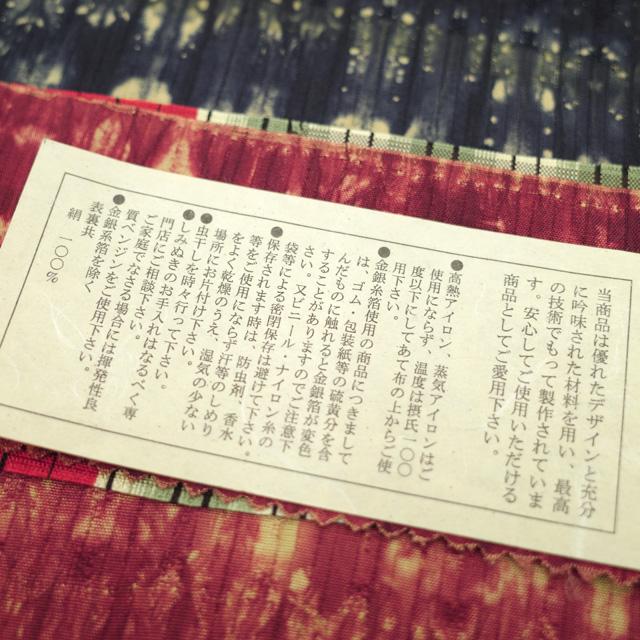 当商品は優れたデザインと充分
に吟味された材料を用い、最高
の技術でもつて製作されていま
す。安心してご使用いただける
商品としてご愛用下さい。
●高熱アイロン、蒸気アイロンはご
使用にならず、温度は摂氏一〇〇
度以下にしてあて布の上からご使
用下さい。
●金銀糸箔使用の商品につきまして
は、ゴム・包装紙等の硫黄分を含
んだものに触れると金銀箔が変色
することがありますのでご注意下
さい。又ビニール・ナイロン糸の
袋等による密閉保存は避けて下さい。
●保存されます時は、防虫剤、香水
等をご使用にならず汗等のしめり
をよく乾燥のうえ、湿気の少ない
場所にお片付け下さい。
●虫干しを時々行って下さい。
●しみぬきのお手入れはなるべく専
門店にご相談下さい。
ご家庭でなさる場合には揮発性良
質ベンジンをご使用下さい。
●金銀糸箔を除く
表裏共
絹 一〇〇%